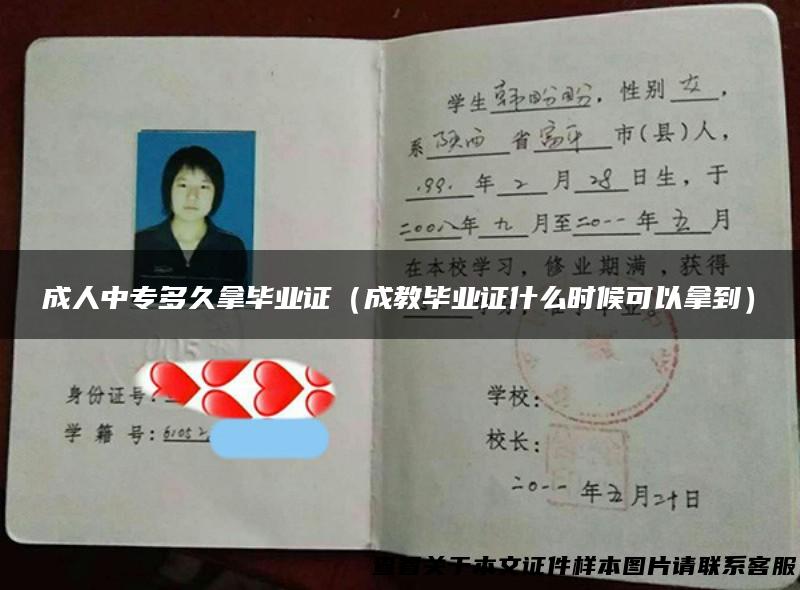 学生韩盼盼,性别女,
系陕西省富平市(县)人,
1991年2月28日生,于
二00八年九月至二0一一年五月
在本校学习,修业期满,获得
成人中专多久拿毕业证（成教毕业证什么时候可以拿到）
005
身份证号:
学籍号:61052
学校:
校长:
二0一一年五月二十日
查看关于本文证件样本图片请联系客服